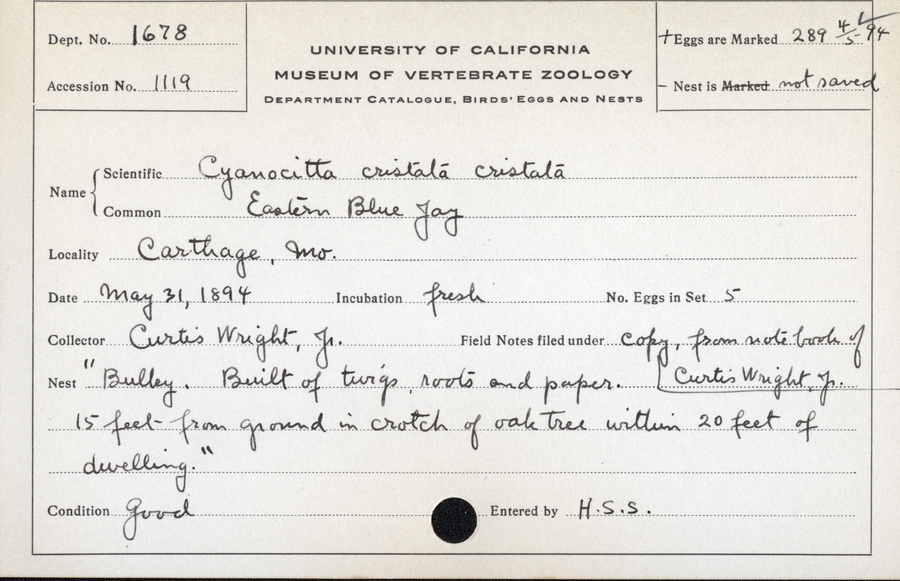 Dept. No. 1678
Accession No. 1119
UNIVERSITY OF CALIFORNIA
MUSEUM OF VERTEBRATE ZOOLOGY
DEPARTMENT CATALOGUE, BIRDS' EGGS AND NESTS
+Eggs are Marked 289 4/5 94
- Nest is Marked not saved
Name
Scientific Cyanocitta cristata cristata
Common Eastern Blue Jay
Locality Carthage, Mo.
Date May 31, 1894 Incubation fresh No. Eggs in Set 5
Collector Curtis Wright, Jr. Field Notes filed under copy, from note book of
Curtis Wright, Jr.
Nest "Bulky. Built of twigs, roots and paper.
15 feet from ground in crotch of oak tree within 20 feet of
dwelling."
Condition Good Entered by H.S.S.